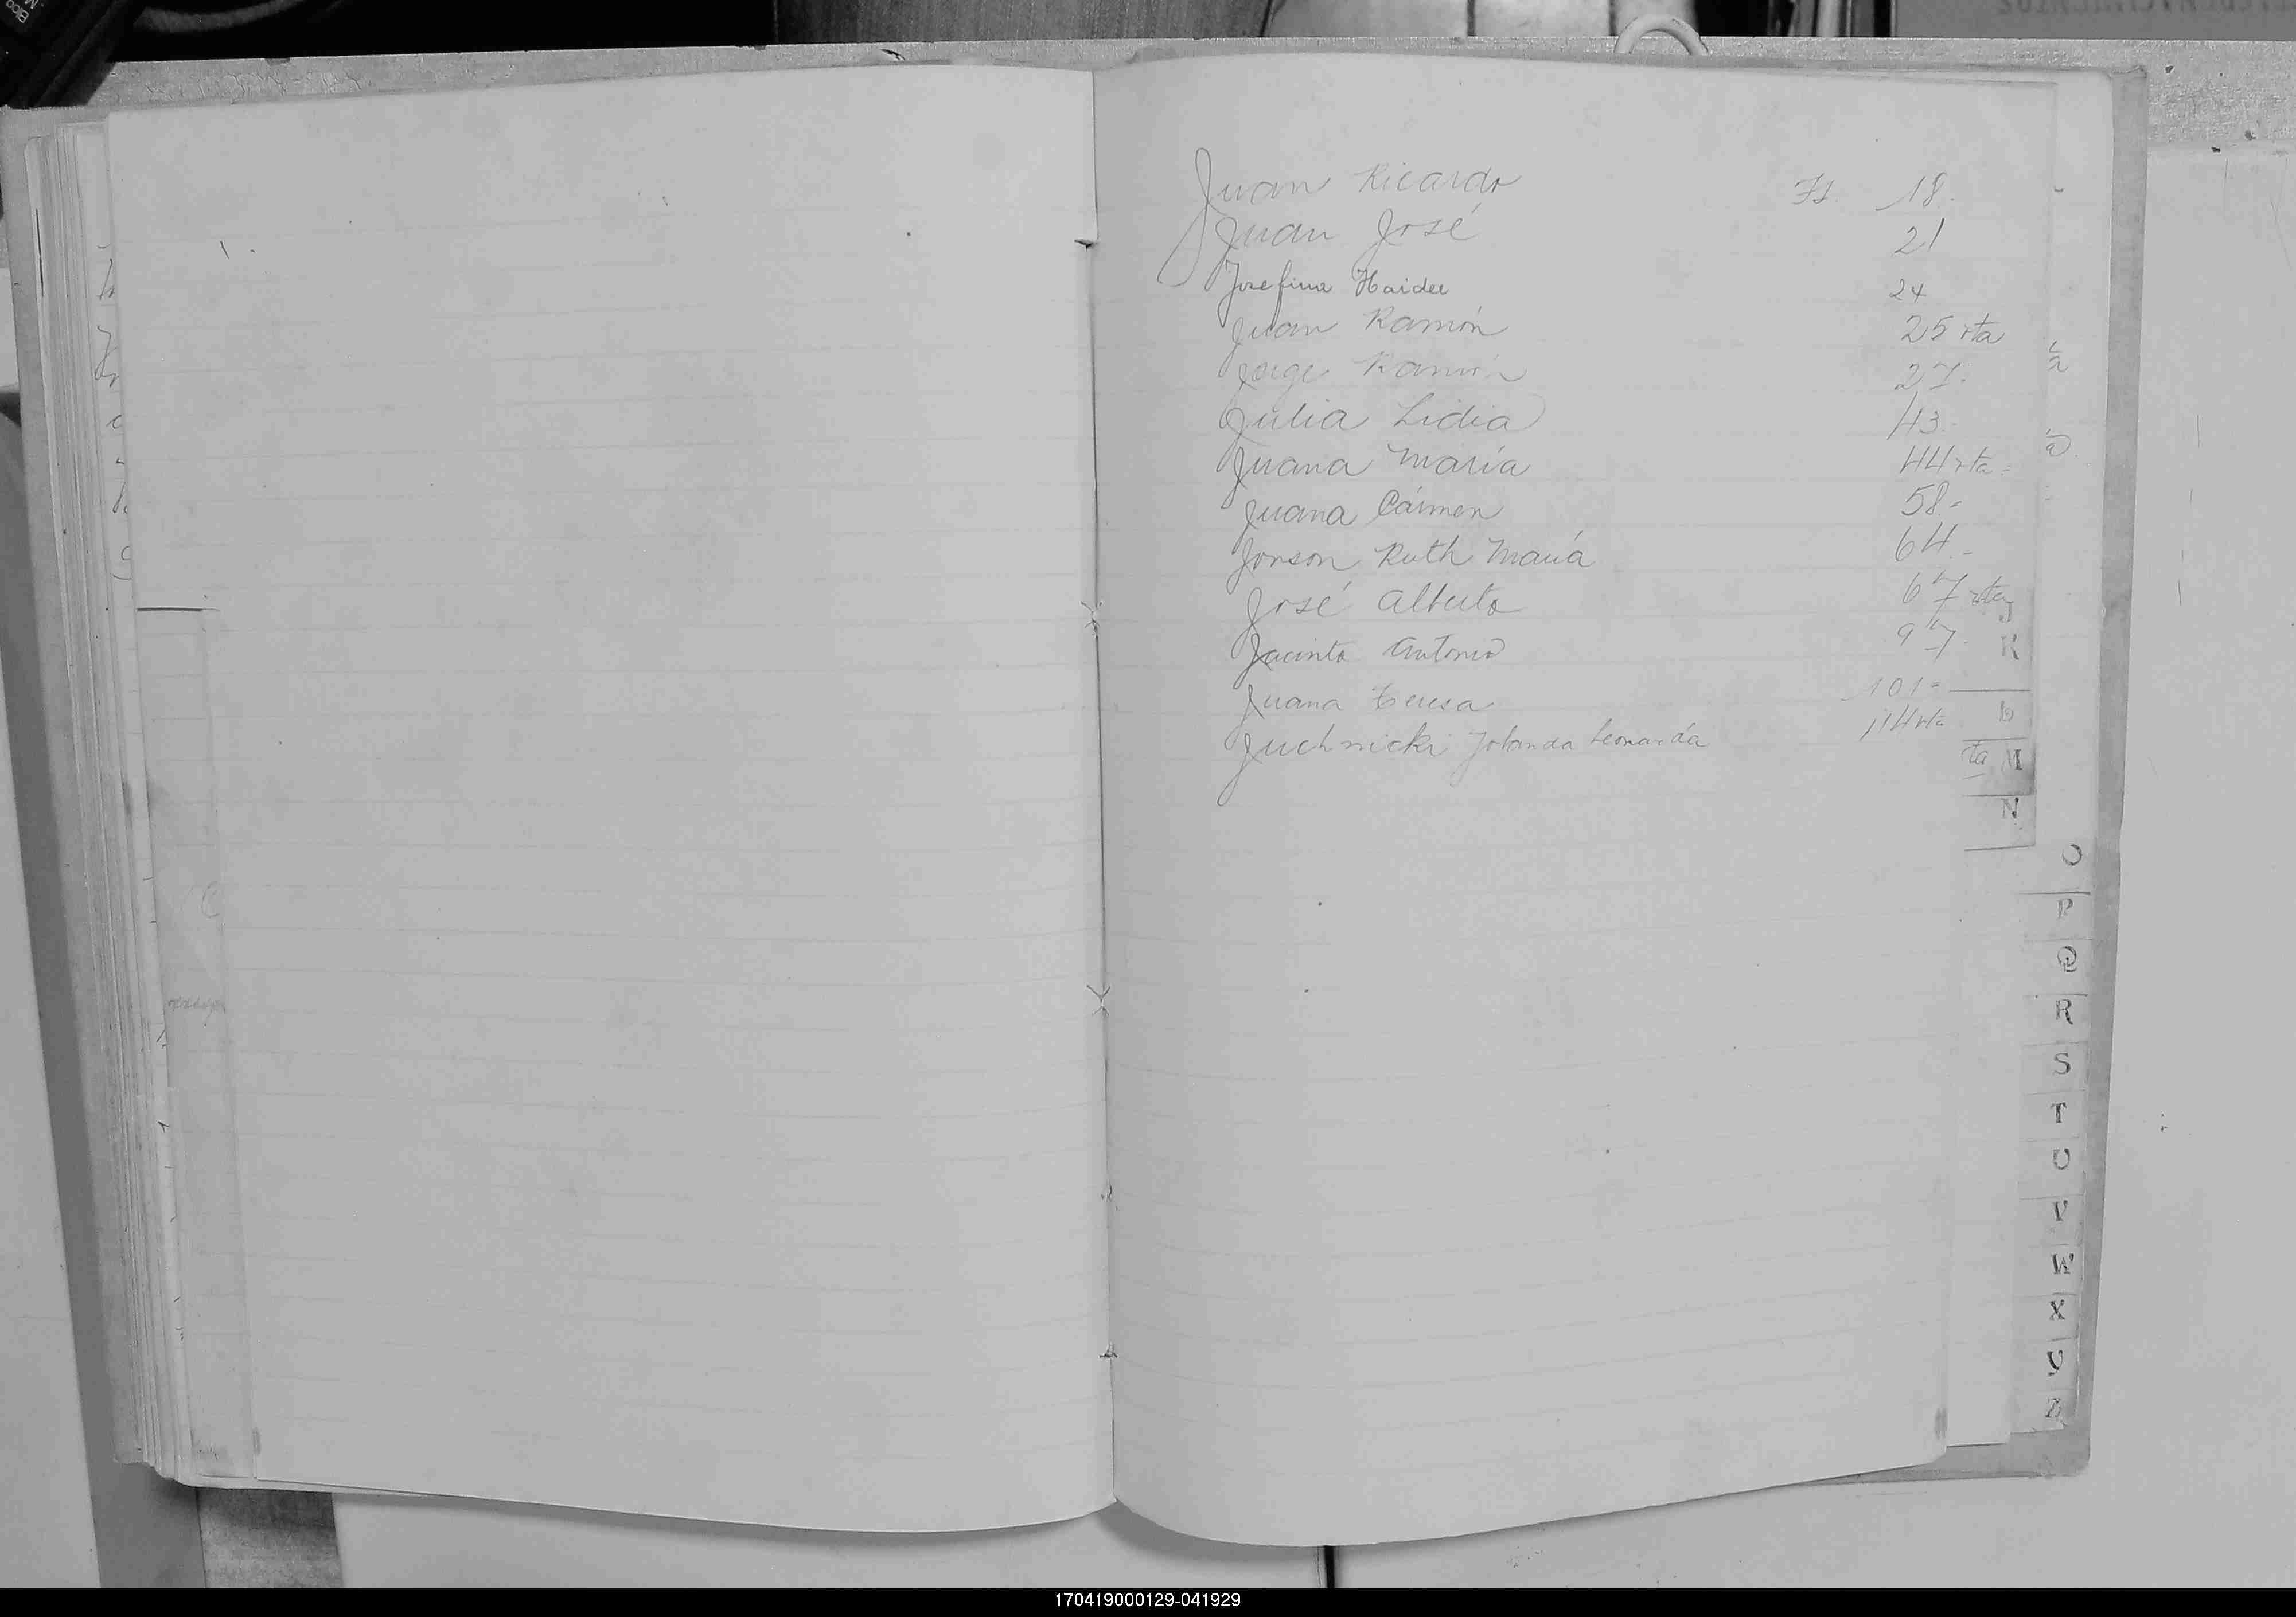 Juan Ricardo Fs. 18.
Juan José 21
Josefina Haidee 24
Juan Ramón 25 vta
Jorge Ramón 27.
Julia Lidia 43.
Juana María 44 vta.
Juana Cármen 58.
Jonson Ruth María 64.
José Alberto 67 vta
Jacinto Antonio 97.
Juana Teresa 101.
Juchnicki Jolanda Leonarda 114 vta
J
K
L
ta M
N
O
P
Q
R
S
T
U
V
W
X
Y
Z
170419000129-041929